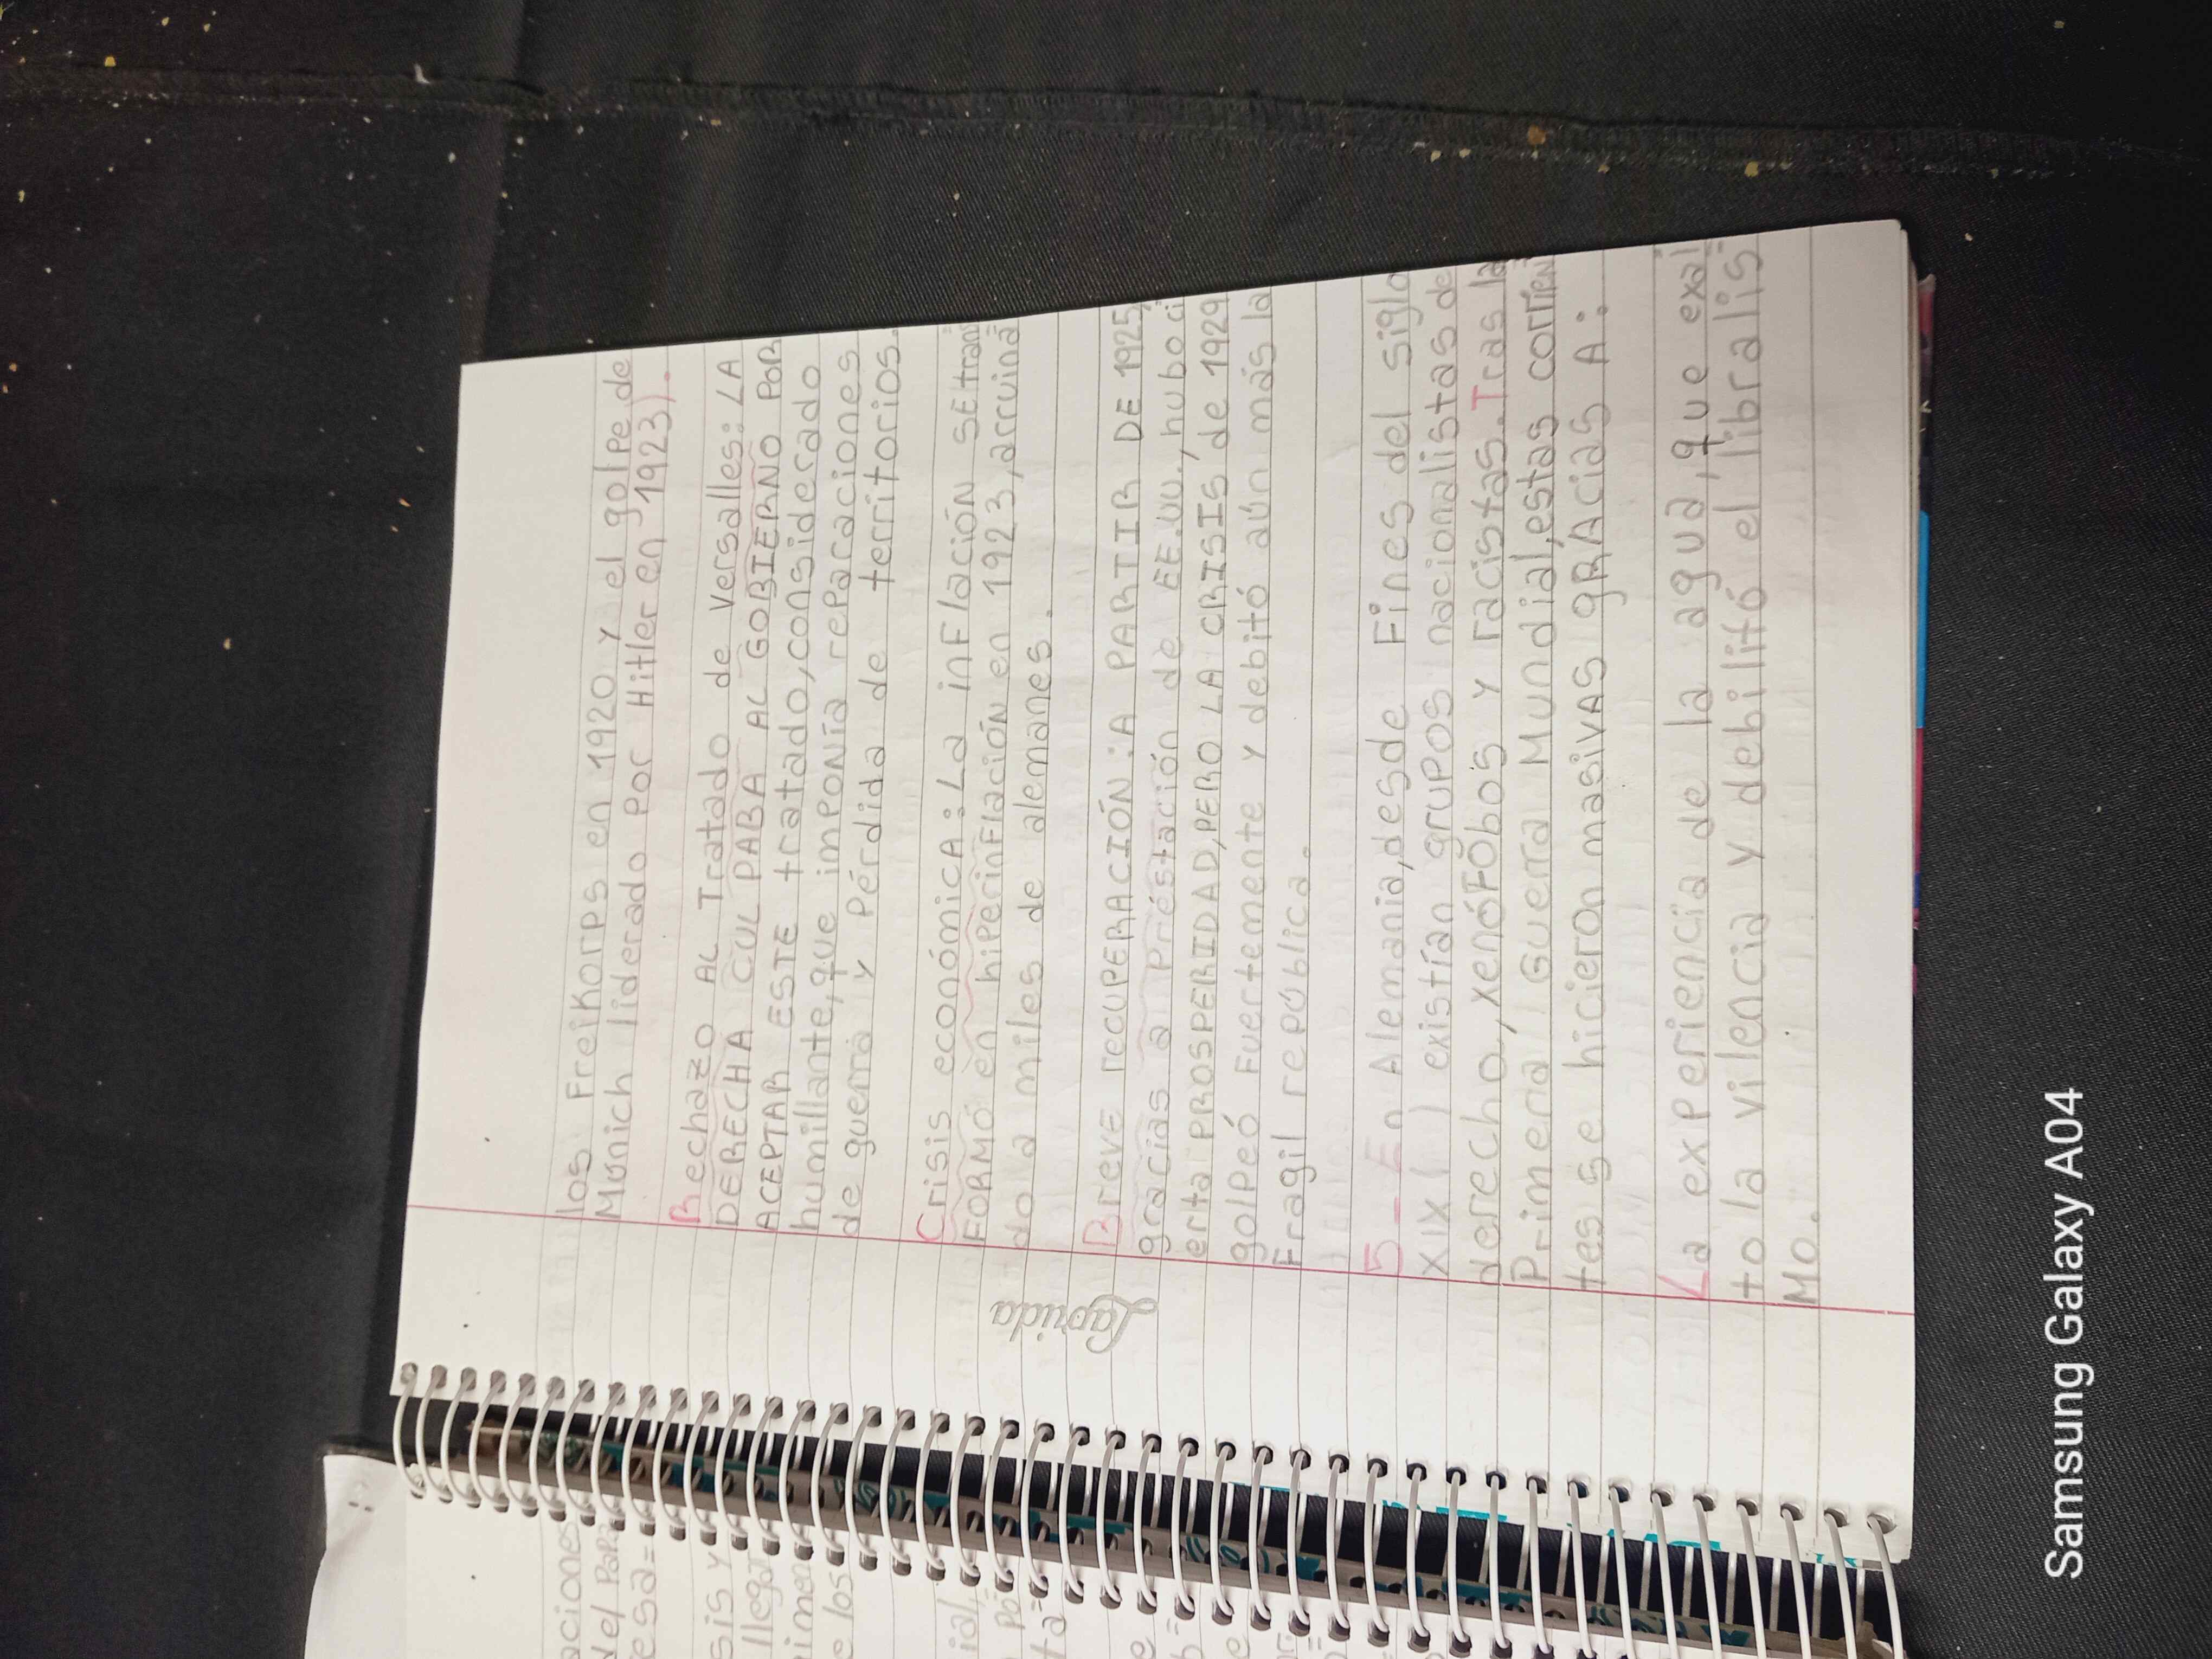 los Freikorps en 1920 y el golpe de
Múnich liderado por Hitler en 1923).
Rechazo AL Tratado de Versalles: LA
DERECHA CULPABA AL GOBIERNO POR
ACEPTAR ESTE tratado, considerado
humillante, que imponía reparaciones
de guerra y Pérdida de territorios.
Crisis económica: La inflación SE trans
FORMÓ en hiperinflación en 1923, arruina=
do a miles de alemanes.
Breve recuperación: A PARTIR DE 1925,
gracias a Préstación de EE.UU., hubo ci
erta PROSPERIDAD, PERO LA CRISIS de 1929
golpeó Fuertemente y debitó aún más la
Fragil república.
5- En Alemania, desde Fines del siglo
XIX ( ) existían grupos nacionalistas de
derecho, xenófobos y racistas. Tras la
Primera Guerra Mundial, estas corrien=
tes se hicieron masivas gracias A:
La experiencia de la agua, que exal=
to la vilencia y debilitó el libralis=
Mo.
Laprida
aciones
del Papa
esa=
sis y
llega
imen
e los
ial,
po
ta=
e
b=
e
Samsung Galaxy A04